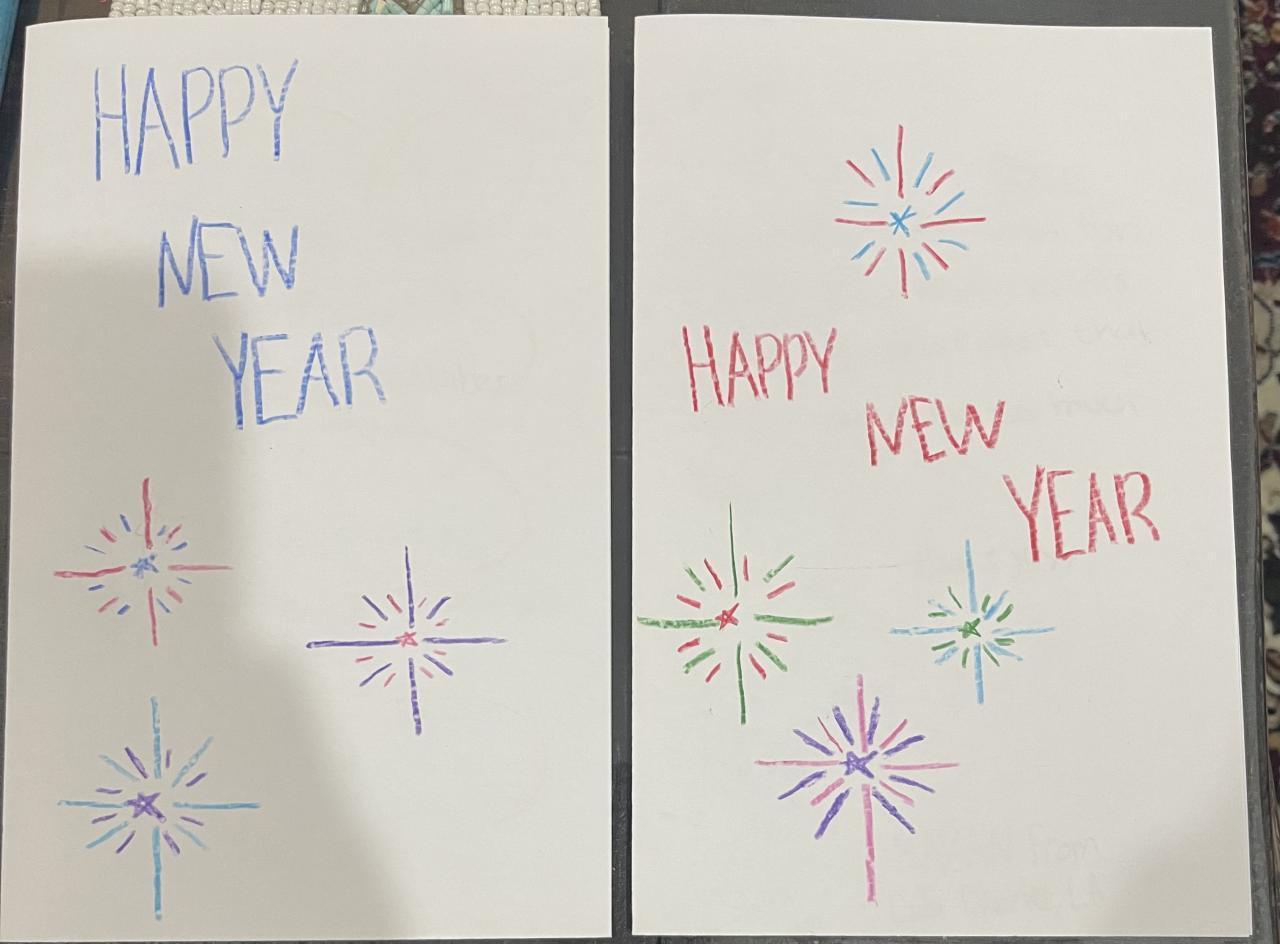 HAPPY
NEW
YEAR
HAPPY
NEW
YEAR